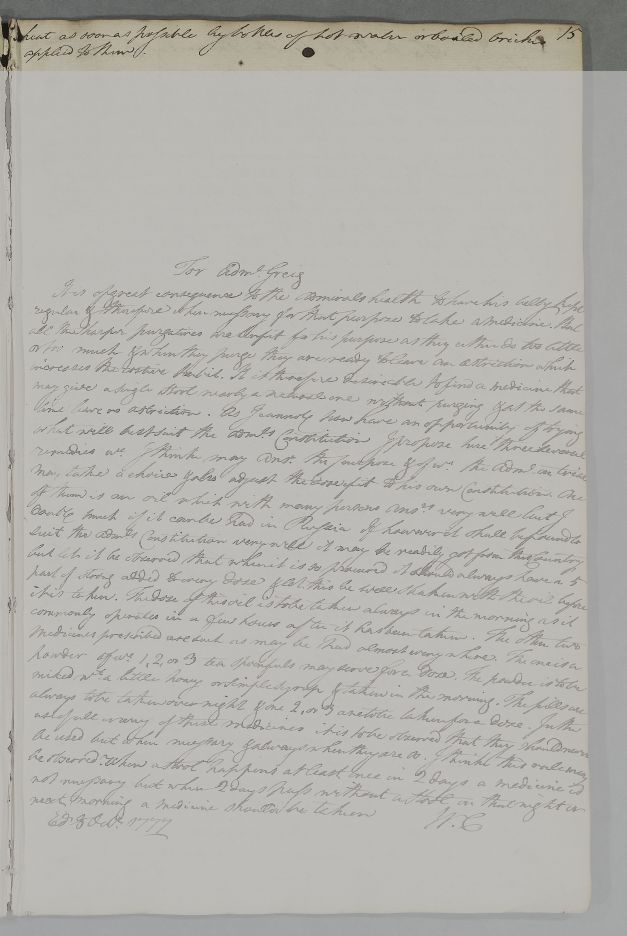 heat as soon as possible by bottles of hot water or boiled bricks 15
applied to them.
For Adml. Greig
It is of great consequence to the Admirals health to have his belly kept
regular & therefore when necessary for that purpose to take a medicine. But
all the sharper purgatives are unfit for his purpose as they either do too little
or too much & when they purge they are ready to leave an astriction which
increases the costive habit. It is therefore desireable to find a medicine that
may give a single stool nearly a natural one without purging & at the same
time leave no astriction. As I cannot now have an opportunity of trying
what will best suit the Admls Constitution I propose here three several
remedies wc. I think may ansr. the purpose & of wc. the Adml. on trial
may take a choice & also adjust the dose fit to his own Constitution. One
of them is an oil which with many persons ansrs very well but I
doubt much if it can be had in Russia. If however it shall be found to
suit the Admls Constitution very well it may be readily got from this Country
but let it be observed that when it is so procured it should always have a 5
part of added to every dose & let this be well shaken with the oil before
it is taken. The dose of this oil is to be taken always in the morning as it
commonly operates in a few hours after it has been taken. The other two
medicines prescribed are such as may be had almost every where. The one is a
powder of wc. 1, 2, or 3 tea spoonfuls may serve for a dose. The powder is to be
mixed wt. a little honey or simple syrup & taken in the morning. The pills are
always to be taken over night & one 2, or 3 are to be taken for a dose. In the
use of all or any of these medicines it is to be observed that they should never
be used but when necessary & always when they are so. I think this rule may
be observed. When a stool happens at least once in 2 days a medicine is
not necessary but when 2 days pass without a stool, on that night or
next morning a medicine should be taken
Edr. 8 Octr. 1777 W. C